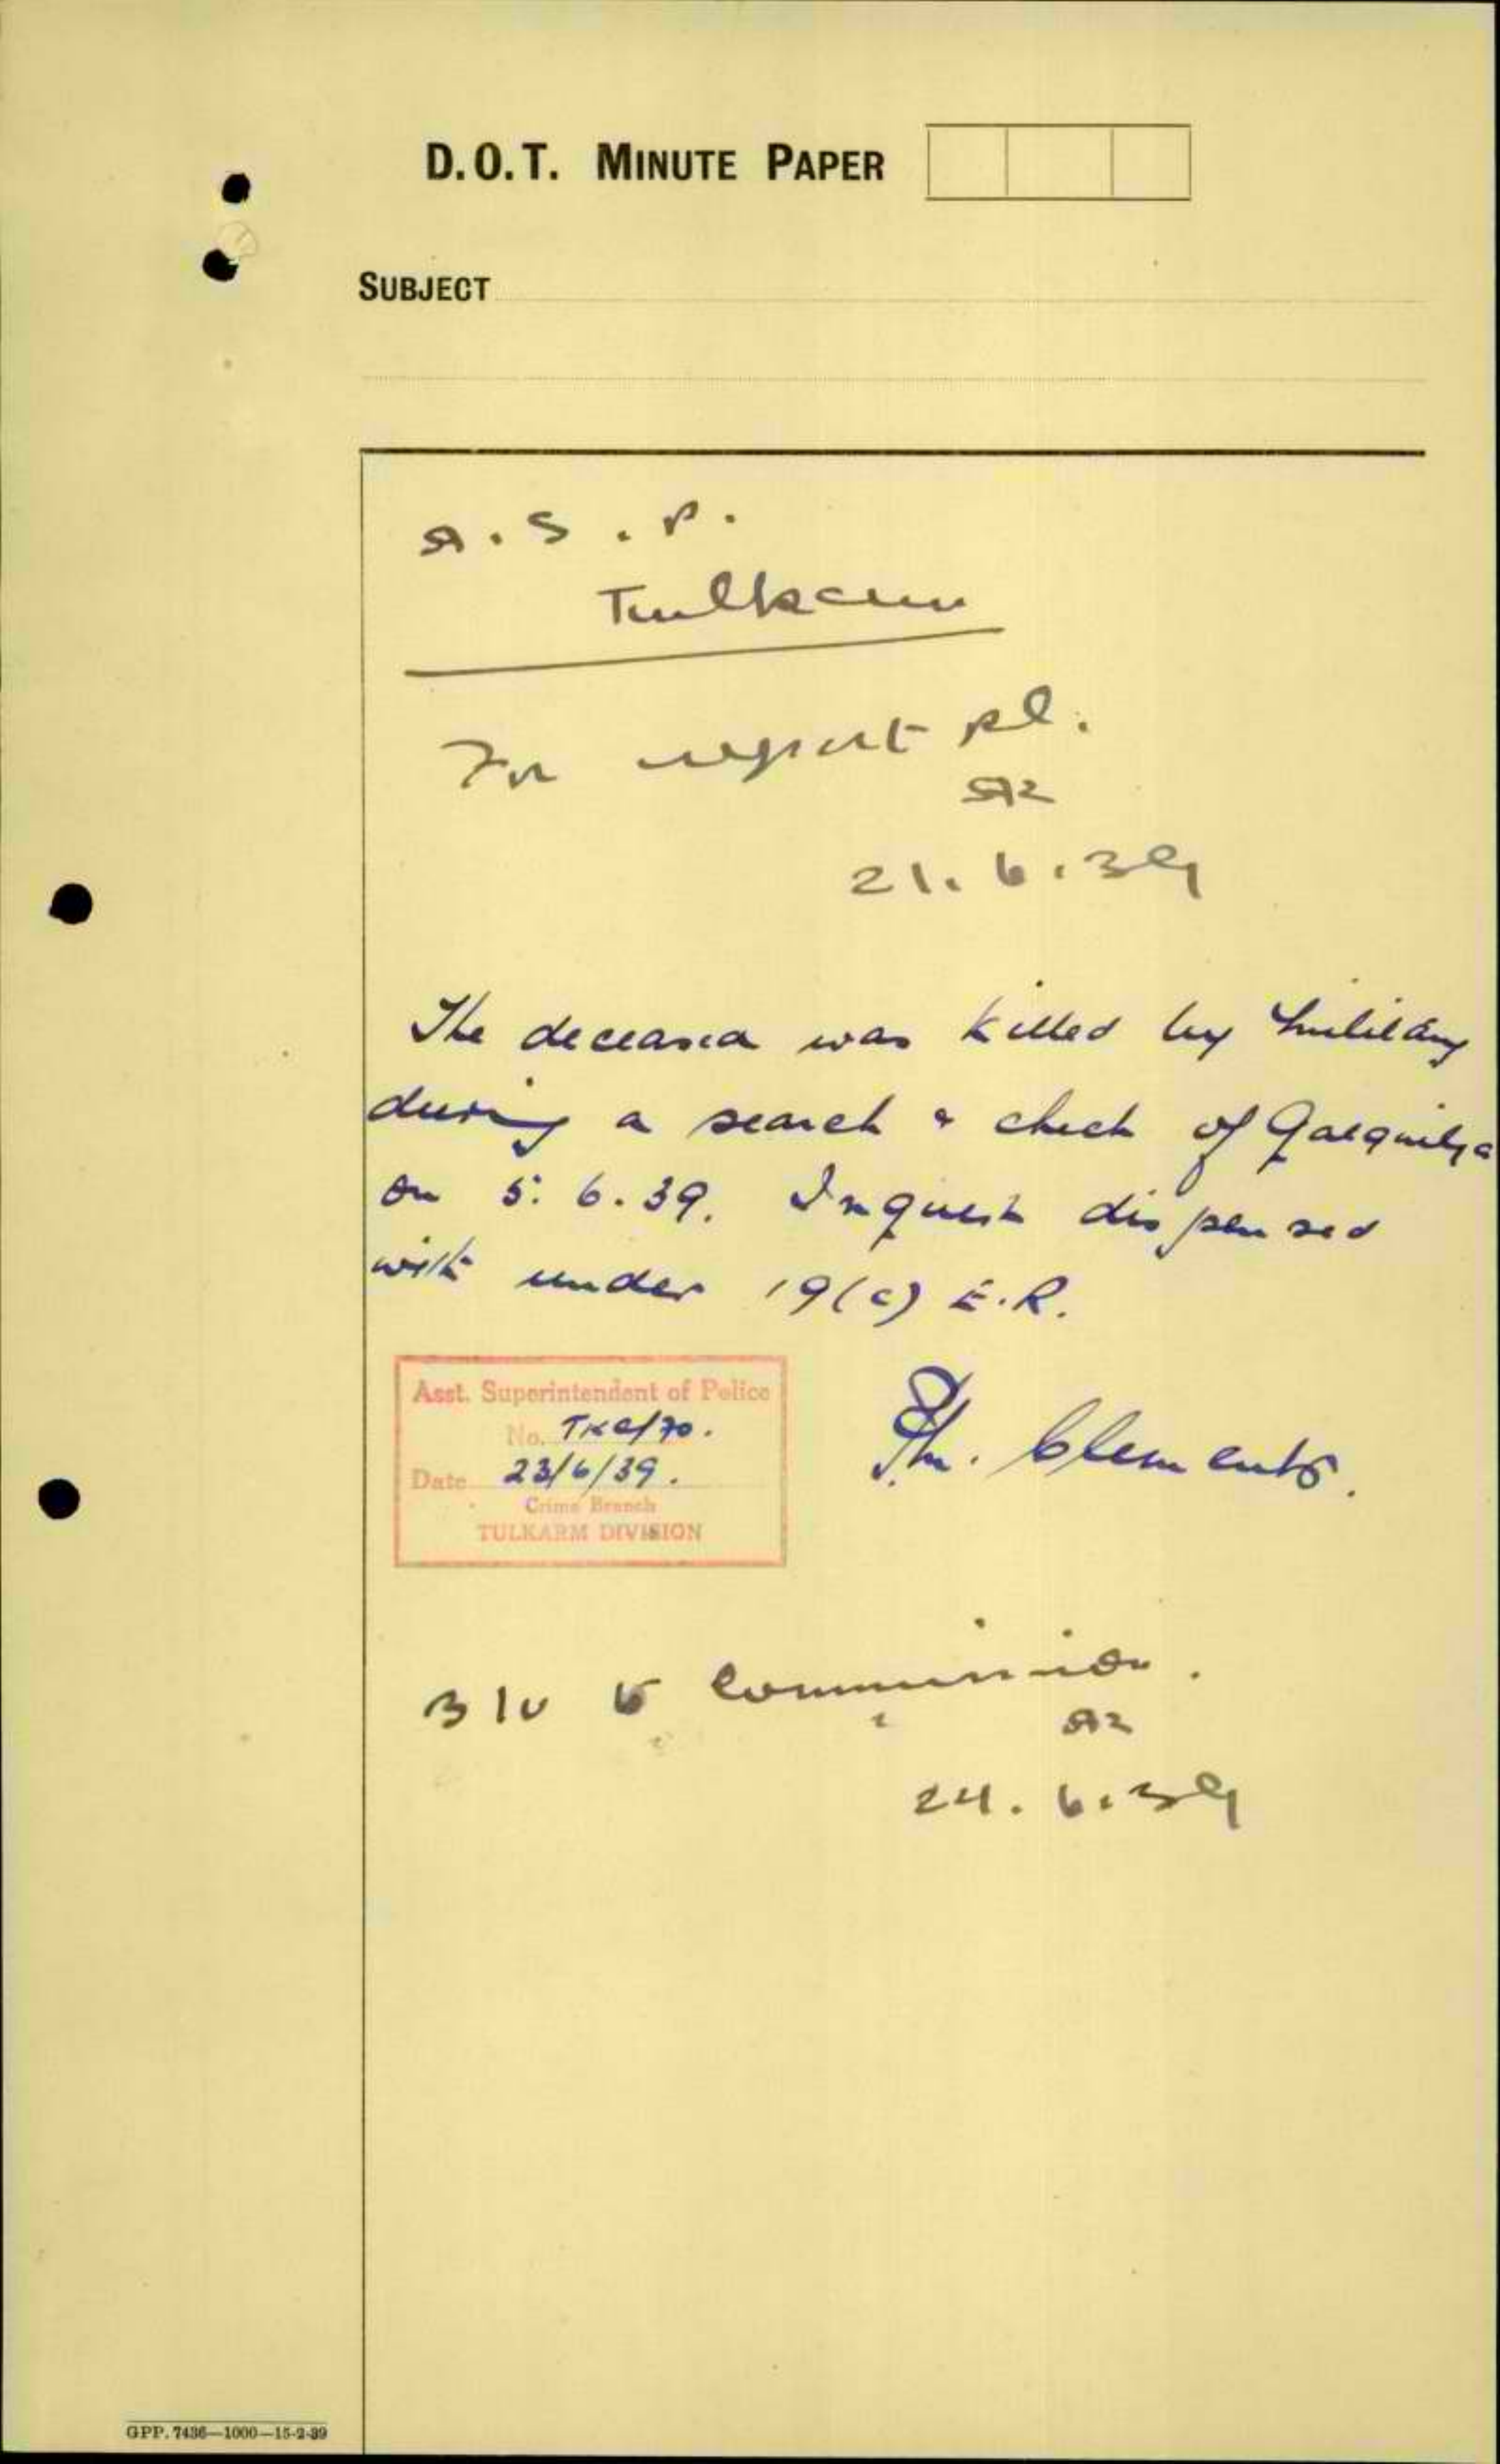 D.O.T. MINUTE PAPER
SUBJECT
A.S.P.
Tulkarm
For report pl.
21.6.39
The deceased was killed by military
during a search & check of Qalquilya
on 5.6.39. Inquest dispensed
with under 19(c) E.R.
Asst. Superintendent of Police
No. TKC/70.
Date 23/6/39.
Crime Branch
TULKARM DIVISION
Clements.
B/U to Commission.
24.6.39
GPP. 7436—1000—15-2-39